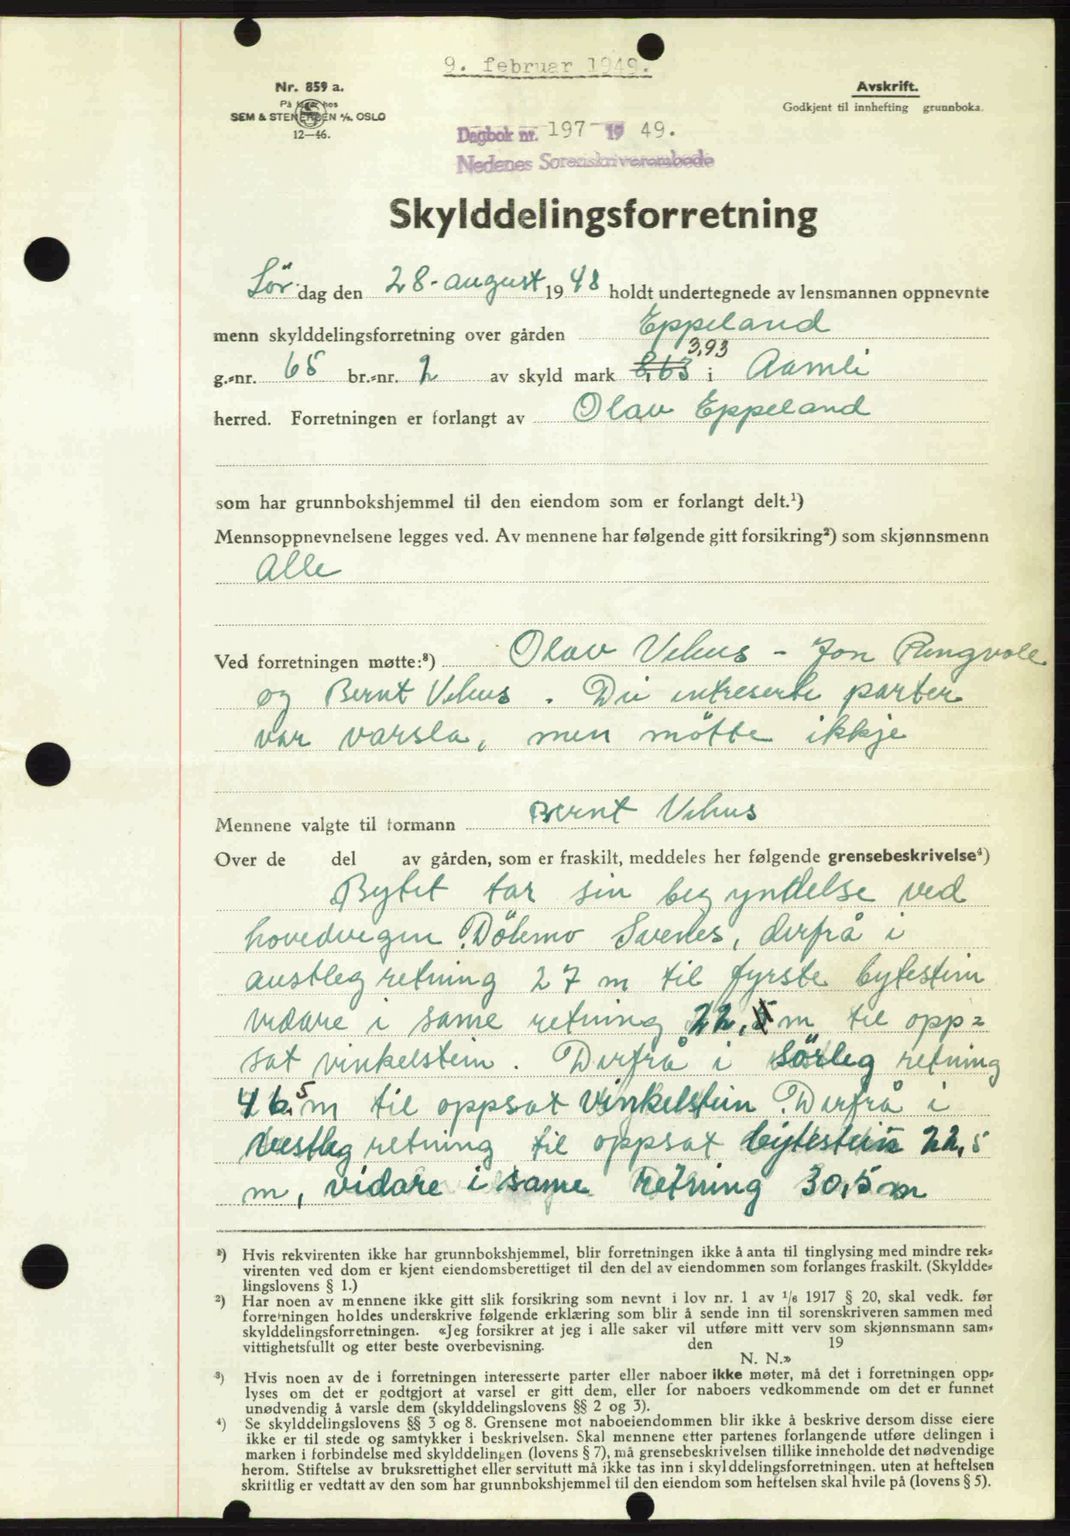 9. februar 1949.
Nr. 859 a.
På lager hos
SEM & STENERSEN A/S, OSLO
12—46.
Avskrift.
Godkjent til innhefting i grunnboka.
Dagbok nr. 197 19 49.
Nedenes Sorenskriverembede
Skylddelingsforretning
Lör dag den 28. august 19 48 holdt undertegnede av lensmannen oppnevnte
menn skylddelingsforretning over gården Eppeland
3,93
g.-nr. 65 br.-nr. 2 av skyld mark 8,63 i Aamli
herred. Forretningen er forlangt av Olav Eppeland
som har grunnbokshjemmel til den eiendom som er forlangt delt.¹)
Mennsoppnevnelsene legges ved. Av mennene har følgende gitt forsikring²) som skjønnsmenn
Alle
Ved forretningen møtte:³) Olav Vehus - Jon Ringvole
og Bernt Vehus. Dei intreserte parter
var varsla, men mötte ikkje
Mennene valgte til formann Bernt Vehus
Over de del av gården, som er fraskilt, meddeles her følgende grensebeskrivelse⁴)
Bytet tar sin begyndelse ved
hovedvegen Dölemo Svenes, derfrå i
austleg retning 27 m til fyrste bytestein
vidare i same retning 22,5 m til opp=
sat vinkelstein. Derfrå i sörleg retning
46,5 m til oppsat vinkelstein. Derfrå i
vestleg retning til oppsat bytestein 22,5
m, vidare i same retning 30,5 m
¹) Hvis rekvirenten ikke har grunnbokshjemmel, blir forretningen ikke å anta til tinglysing med mindre rek-
virenten ved dom er kjent eiendomsberettiget til den del av eiendommen som forlanges fraskilt. (Skyldde-
lingslovens § 1.)
²) Har noen av mennene ikke gitt slik forsikring som nevnt i lov nr. 1 av 1/6 1917 § 20, skal vedk. før
forretningen holdes underskrive følgende erklæring som blir å sende inn til sorenskriveren sammen med
skylddelingsforretningen. «Jeg forsikrer at jeg i alle saker vil utføre mitt verv som skjønnsmann sam-
vittighetsfullt og etter beste overbevisning. den 19
N. N.»
³) Hvis noen av de i forretningen interesserte parter eller naboer ikke møter, må det i forretningen opp-
lyses om det er godtgjort at varsel er gitt dem, eller for naboers vedkommende om det er funnet
unødvendig å varsle dem (skylddelingslovens §§ 2 og 3).
⁴) Se skylddelingslovens §§ 3 og 8. Grensene mot naboeiendommen blir ikke å beskrive dersom disse eiere
ikke er til stede og samtykker i beskrivelsen. Skal mennene etter partenes forlangende utføre delingen i
marken i forbindelse med skylddelingen (lovens § 7), må grensebeskrivelsen tillike inneholde det nødvendige
herom. Stiftelse av bruksrettighet eller servitutt må ikke tas inn i skylddelingsforretningen, uten at heftelsen
skriftlig er vedtatt av den som har grunnbokshjemmel til den eiendom som heftelsen skal hvile på (lovens § 5).